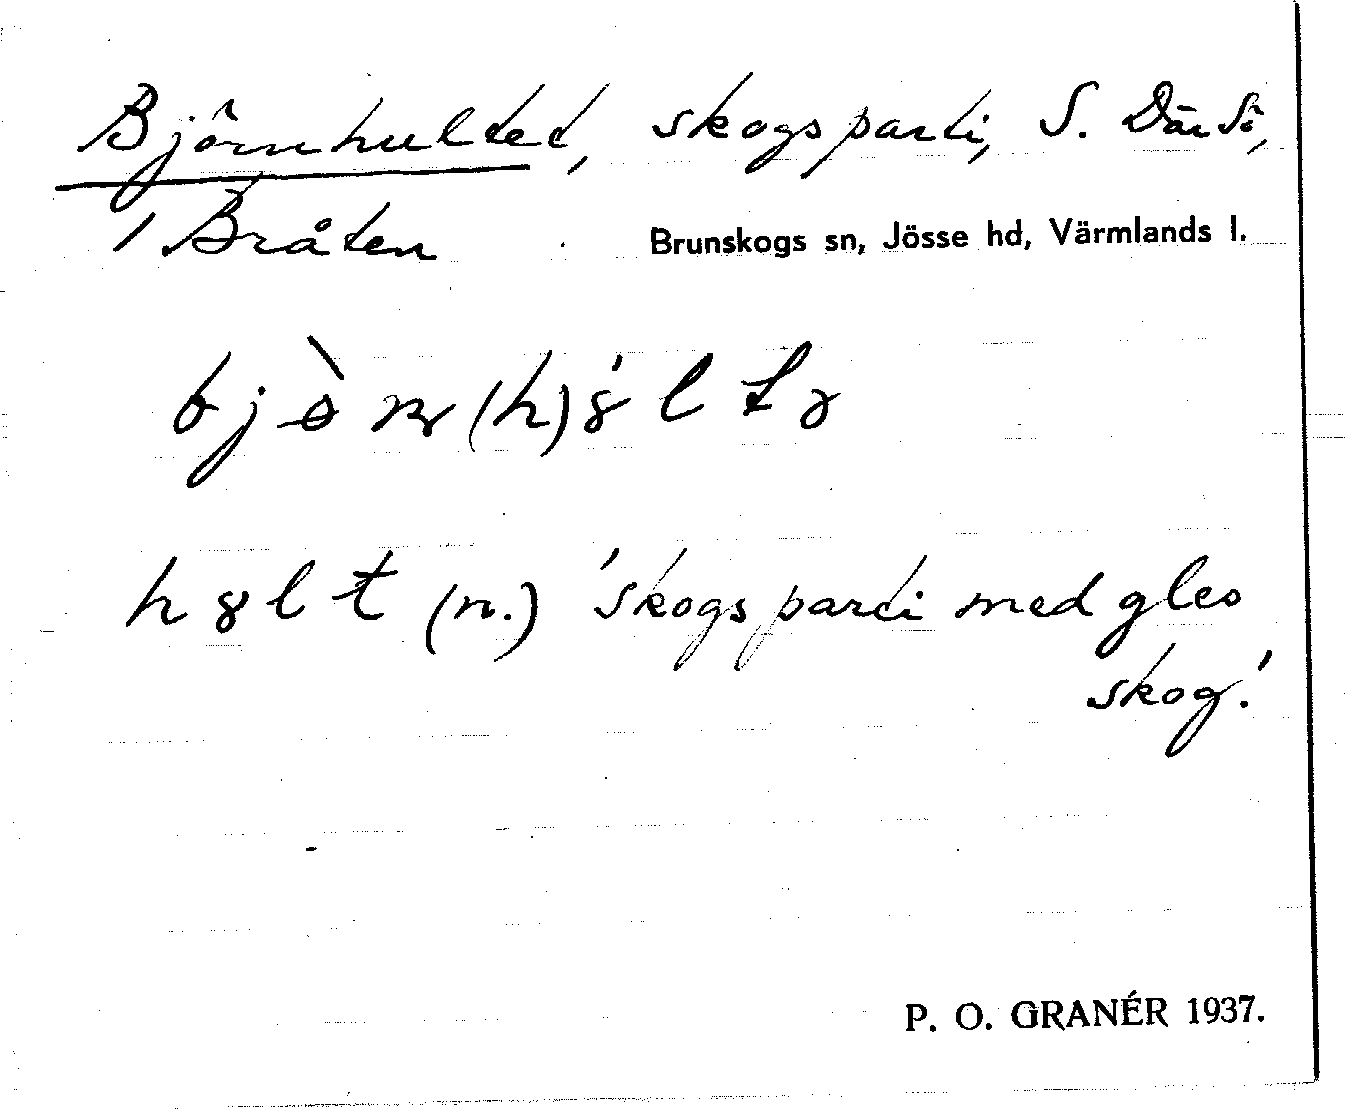 Björnhultet, skogsparti, S.
1 Bråten
Brunskogs sn, Jösse hd, Värmlands l.
hȣlt (n.) 'skogsparti med gles
skog.'
P. O. GRANÉR 1937.